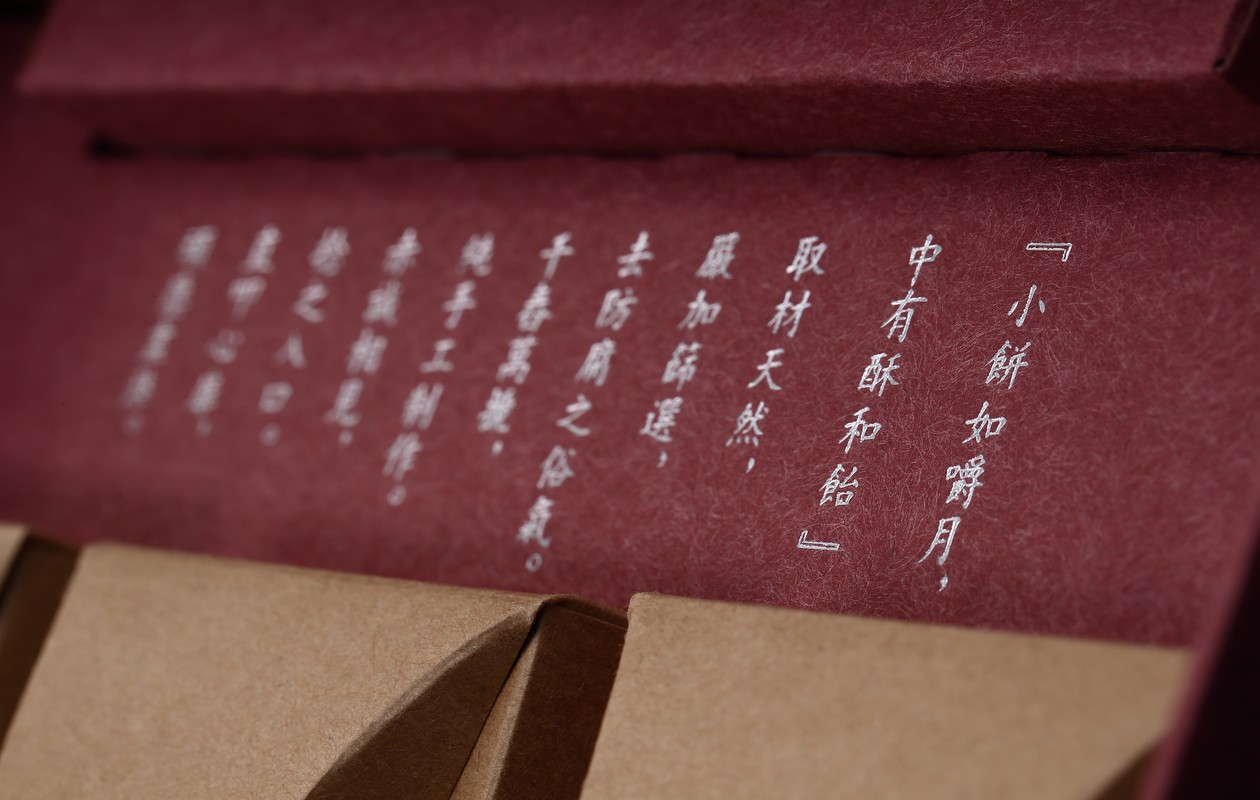 『小餅如嚼月，
中有酥和飴』
取材天然，
嚴加篩選，
去防腐之俗氣。
千舂萬，
純手工制作。
赤誠相見，
之入口。
直叩心扉，